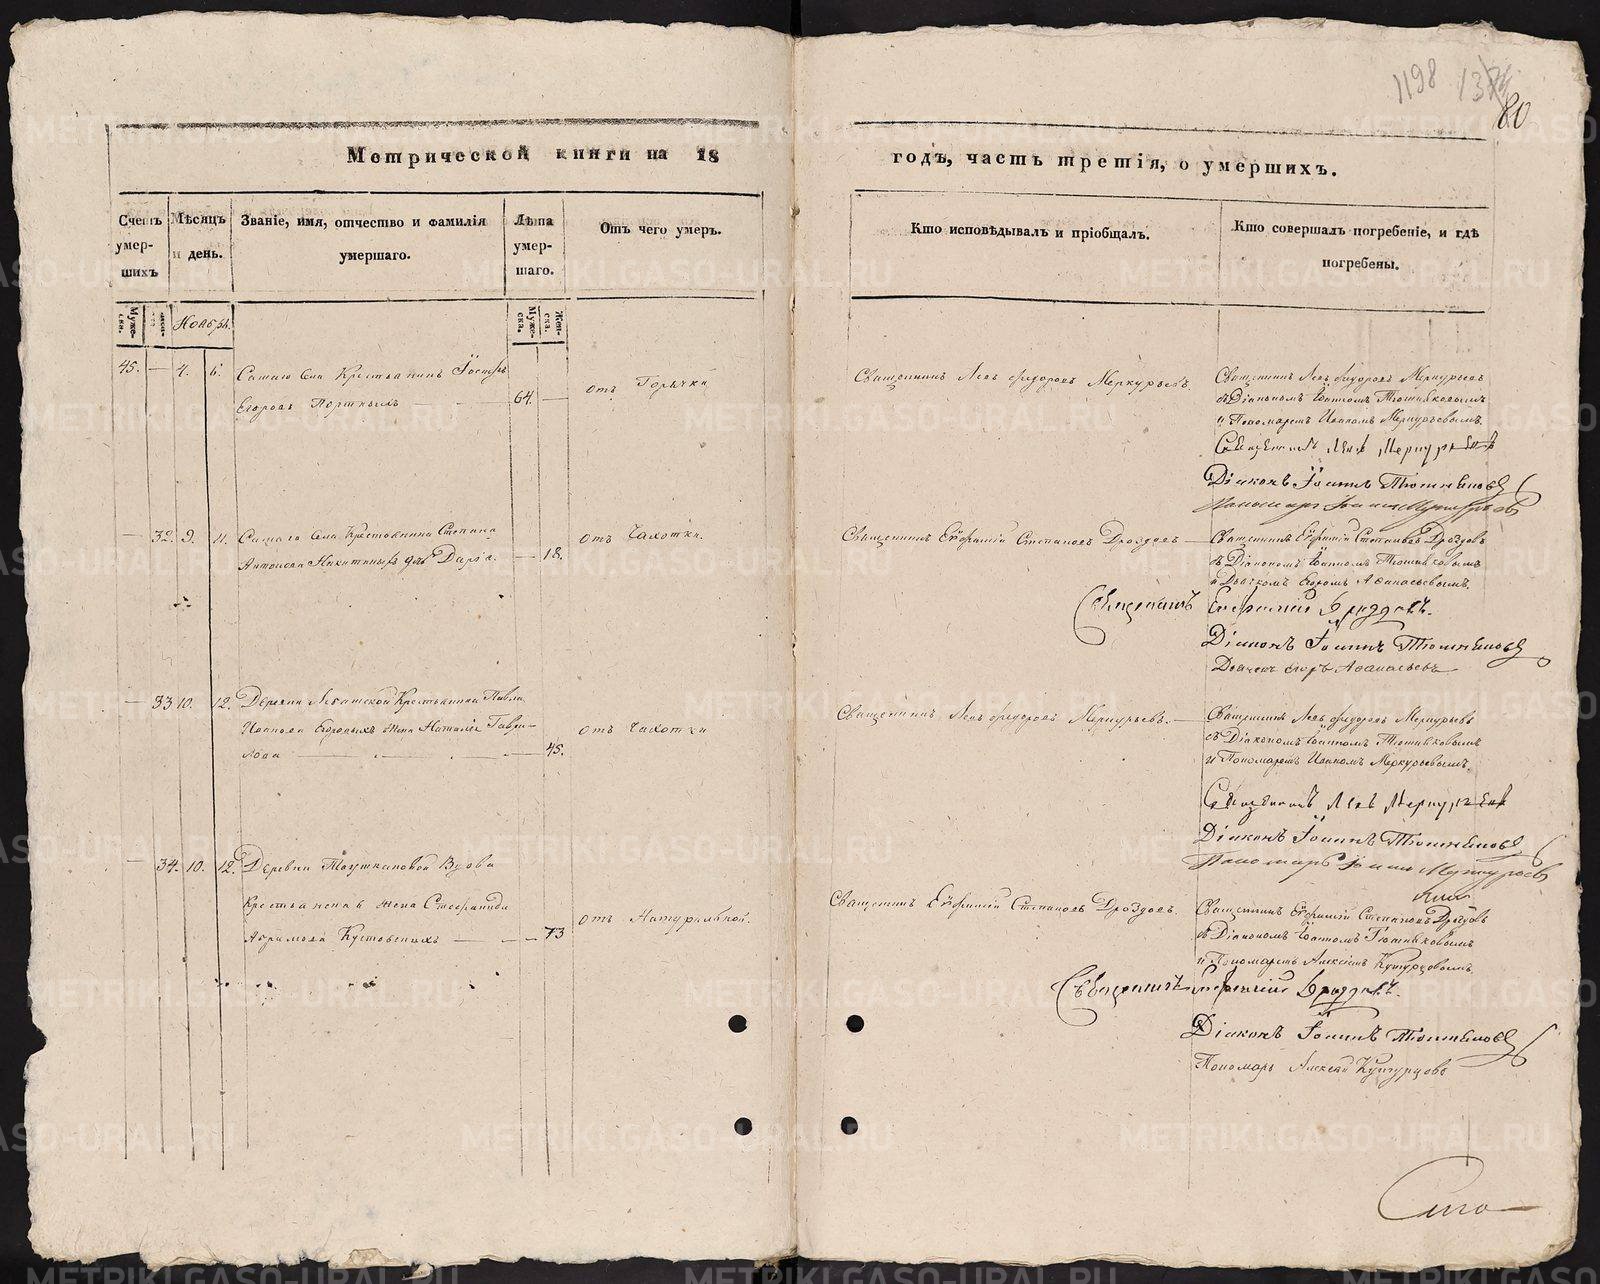 1198 137
80
Метрической книги на 18
годъ, часть третія, о умершихъ.
Счетъ умер-шихъ
Мѣсяцъ и день.
Званіе, имя, отчество и фамилія умершаго.
Лѣта умер-шаго.
Отъ чего умеръ.
Кто исповѣдывалъ и пріобщалъ.
Кто совершалъ погребеніе, и гдѣ погребены.
Муже-ска.
Муже-ска.
Жен-ска.
45. — 4. 6.
Егоровъ Портныхъ — 64. —
отъ Горячки
Священникъ Левъ Федоровъ Меркурьевъ
Священникъ Левъ Федоровъ Меркурьевъ
съ Діакономъ Іоанномъ
и Пономаремъ Иваномъ Меркурьевымъ.
Священникъ Левъ Меркурьевъ
Діаконъ Іоаннъ
— 32. 9. 11. Самаго Села Крестьянина Степана
Никитиныхъ дочь Дарья. — 18.
отъ Чахотки.
Священникъ Евфимій Степановъ Дроздовъ —
Священникъ Евфимій Степановъ Дроздовъ
съ Діакономъ Іоанномъ
и Дьячкомъ Егоромъ Афанасьевымъ.
Священникъ Евфимій Дроздовъ.
Діаконъ Іоаннъ
Дьячекъ Егоръ Афанасьевъ
— 33 10. 12. Деревни Крестьянина Павла
Иванова Егоровыхъ жена Наталія Гаври-
лова — 45.
отъ Чахотки
Священникъ Левъ Федоровъ Меркурьевъ. —
Священникъ Левъ Федоровъ Меркурьевъ
съ Діакономъ Іоанномъ
и Пономаремъ Иваномъ Меркурьевымъ.
Священникъ Левъ Меркурьевъ
Діаконъ Іоаннъ
Пономарь Иванъ Меркурьевъ
— 34. 10. 12. Деревни Вдова
Крестьянская жена Стефанида
Абрамова — 73
отъ Натуральной.
Священникъ Евфимій Степановъ Дроздовъ.
Священникъ Евфимій Степановъ Дроздовъ
съ Діакономъ Іоанномъ
и Пономаремъ Алексѣемъ
Священникъ Евфимій Дроздовъ.
Діаконъ Іоаннъ
Пономарь Алексѣй
METRIKI.GASO-URAL.RU